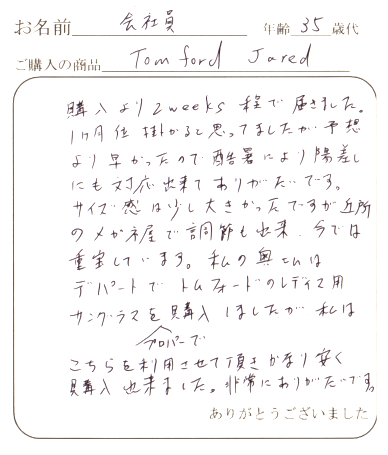 お名前 会社員 年齢 35 歳代
ご購入の商品 Tom ford Jared
購入より2weeks程で届きました。
1ヶ月位掛かると思ってましたが予想
より早かったので酷暑により陽差し
にも対応出来てありがたいです。
サイズ感は少し大きかったですが近所
のメガネ屋で調節も出来、今では
重宝しています。私の奥さんは
デパートでトムフォードのレディス用
サングラスを購入しましたが私は
プロパーで
こちらを利用させて頂きかなり安く
購入出来ました。非常にありがたいです。
ありがとうございました